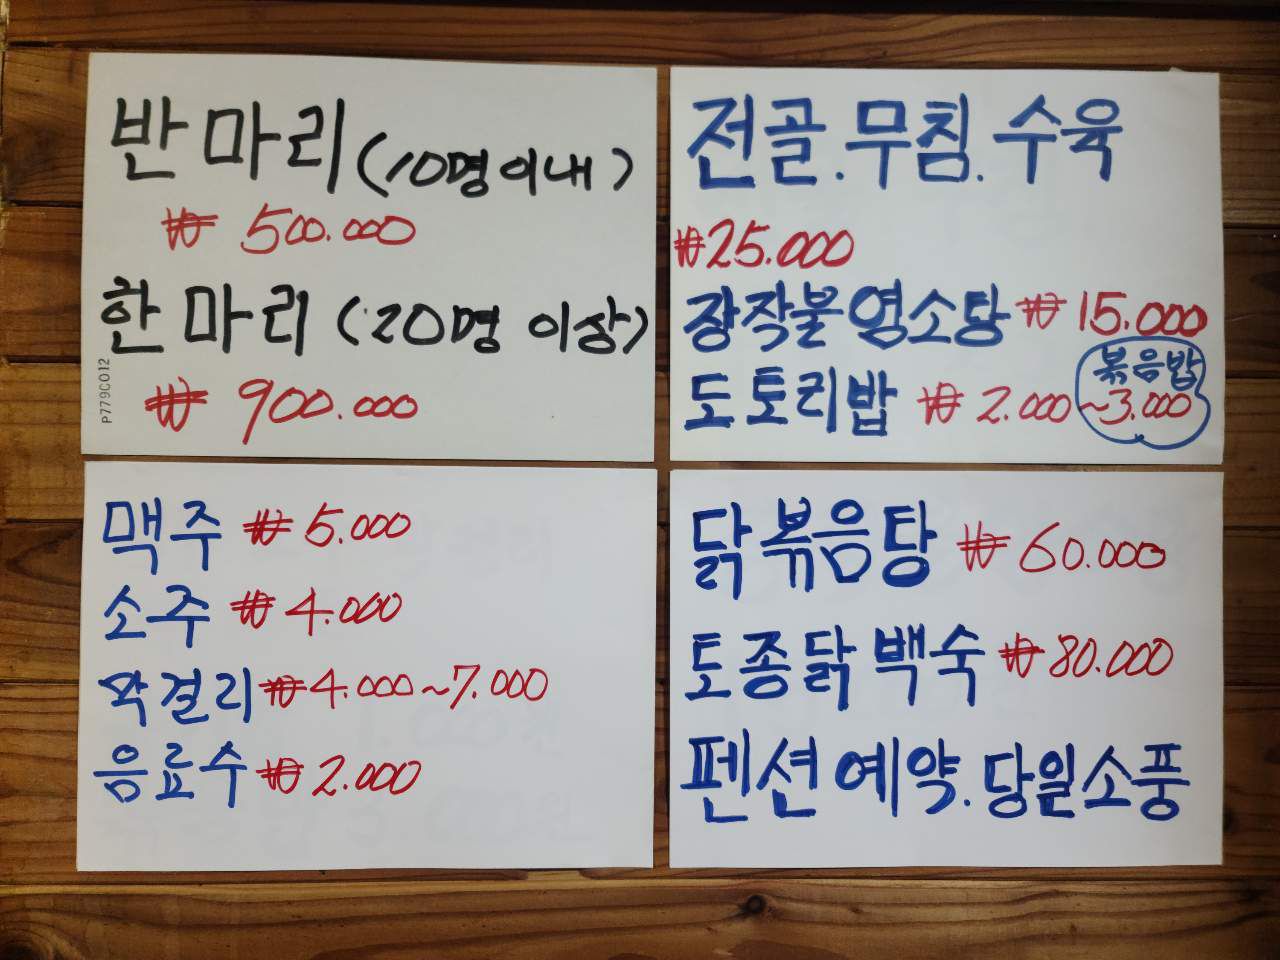 반마리(10명이내)
₩ 500.000
한마리(20명 이상)
₩ 900.000
P779C012
전골.무침.수육
₩25.000
장작불염소탕 ₩ 15.000
도토리밥 ₩ 2.000
볶음밥
~3.000
맥주 ₩ 5.000
소주 ₩ 4.000
막걸리 ₩4.000~7.000
음료수 ₩2.000
닭볶음탕 ₩ 60.000
토종닭 백숙 ₩80.000
펜션예약.당일소풍